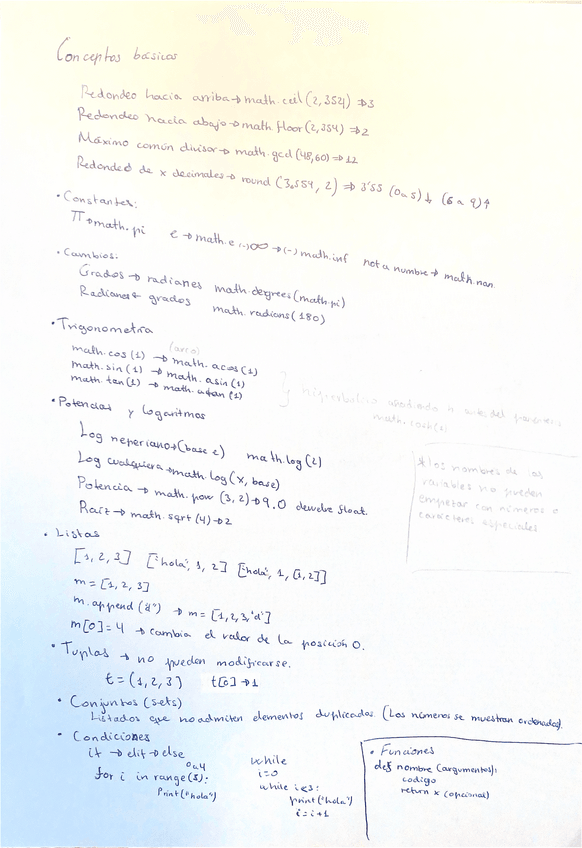 Conceptos básicos
Redondeo hacia arriba → math.ceil (2,352) ⇒ 3
Redondeo hacia abajo → math floor (2,354) ⇒ 2
Máximo común divisor → math.gcd (48,60) ⇒ 12
Redondeo de x decimales → round (3,554, 2) ⇒ 3'55 (0 a 5) ↓ (6 a 9) ↑
• Constantes:
π → math.pi e → math.e (-) ∞ → (-) math.inf not a numbre → math.nan
• Cambios:
Grados → radianes math.degrees (math.pi)
Radianes → grados math.radians (180)
• Trigonometría
(arco)
math.cos (1) → math.acos (1)
math.sin (1) → math.asin (1)
math.tan (1) → math.atan (1)
} hiperbólico añadiendo h antes del paréntesis
math.cosh(1)
• Potencias y logaritmos
Log neperiano → (base e) math.log (2)
Log cualquiera → math.log (x, base)
Potencia → math.pow (3, 2) → 9.0 devuelve float.
Raíz → math.sqrt (4) → 2
* los nombres de las
variables no pueden
empezar con números o
carácteres especiales
• Listas
[1, 2, 3] ['hola', 1, 2] ['hola', 1, [1, 2]]
m = [1, 2, 3]
m.append ("d") → m = [1, 2, 3, 'd']
m[0] = 4 → cambia el valor de la posición 0.
• Tuplas → no pueden modificarse.
t = (1, 2, 3) t[0] → 1
• Conjuntos (sets)
Listados que no admiten elementos duplicados. (Los números se muestran ordenados).
• Condiciones
if → elif → else
0 a 4
for i in range (5):
print ("hola")
while
i = 0
while i < 3:
print ("hola")
i = i + 1
• Funciones
def nombre (argumentos):
codigo
return x (opcional)